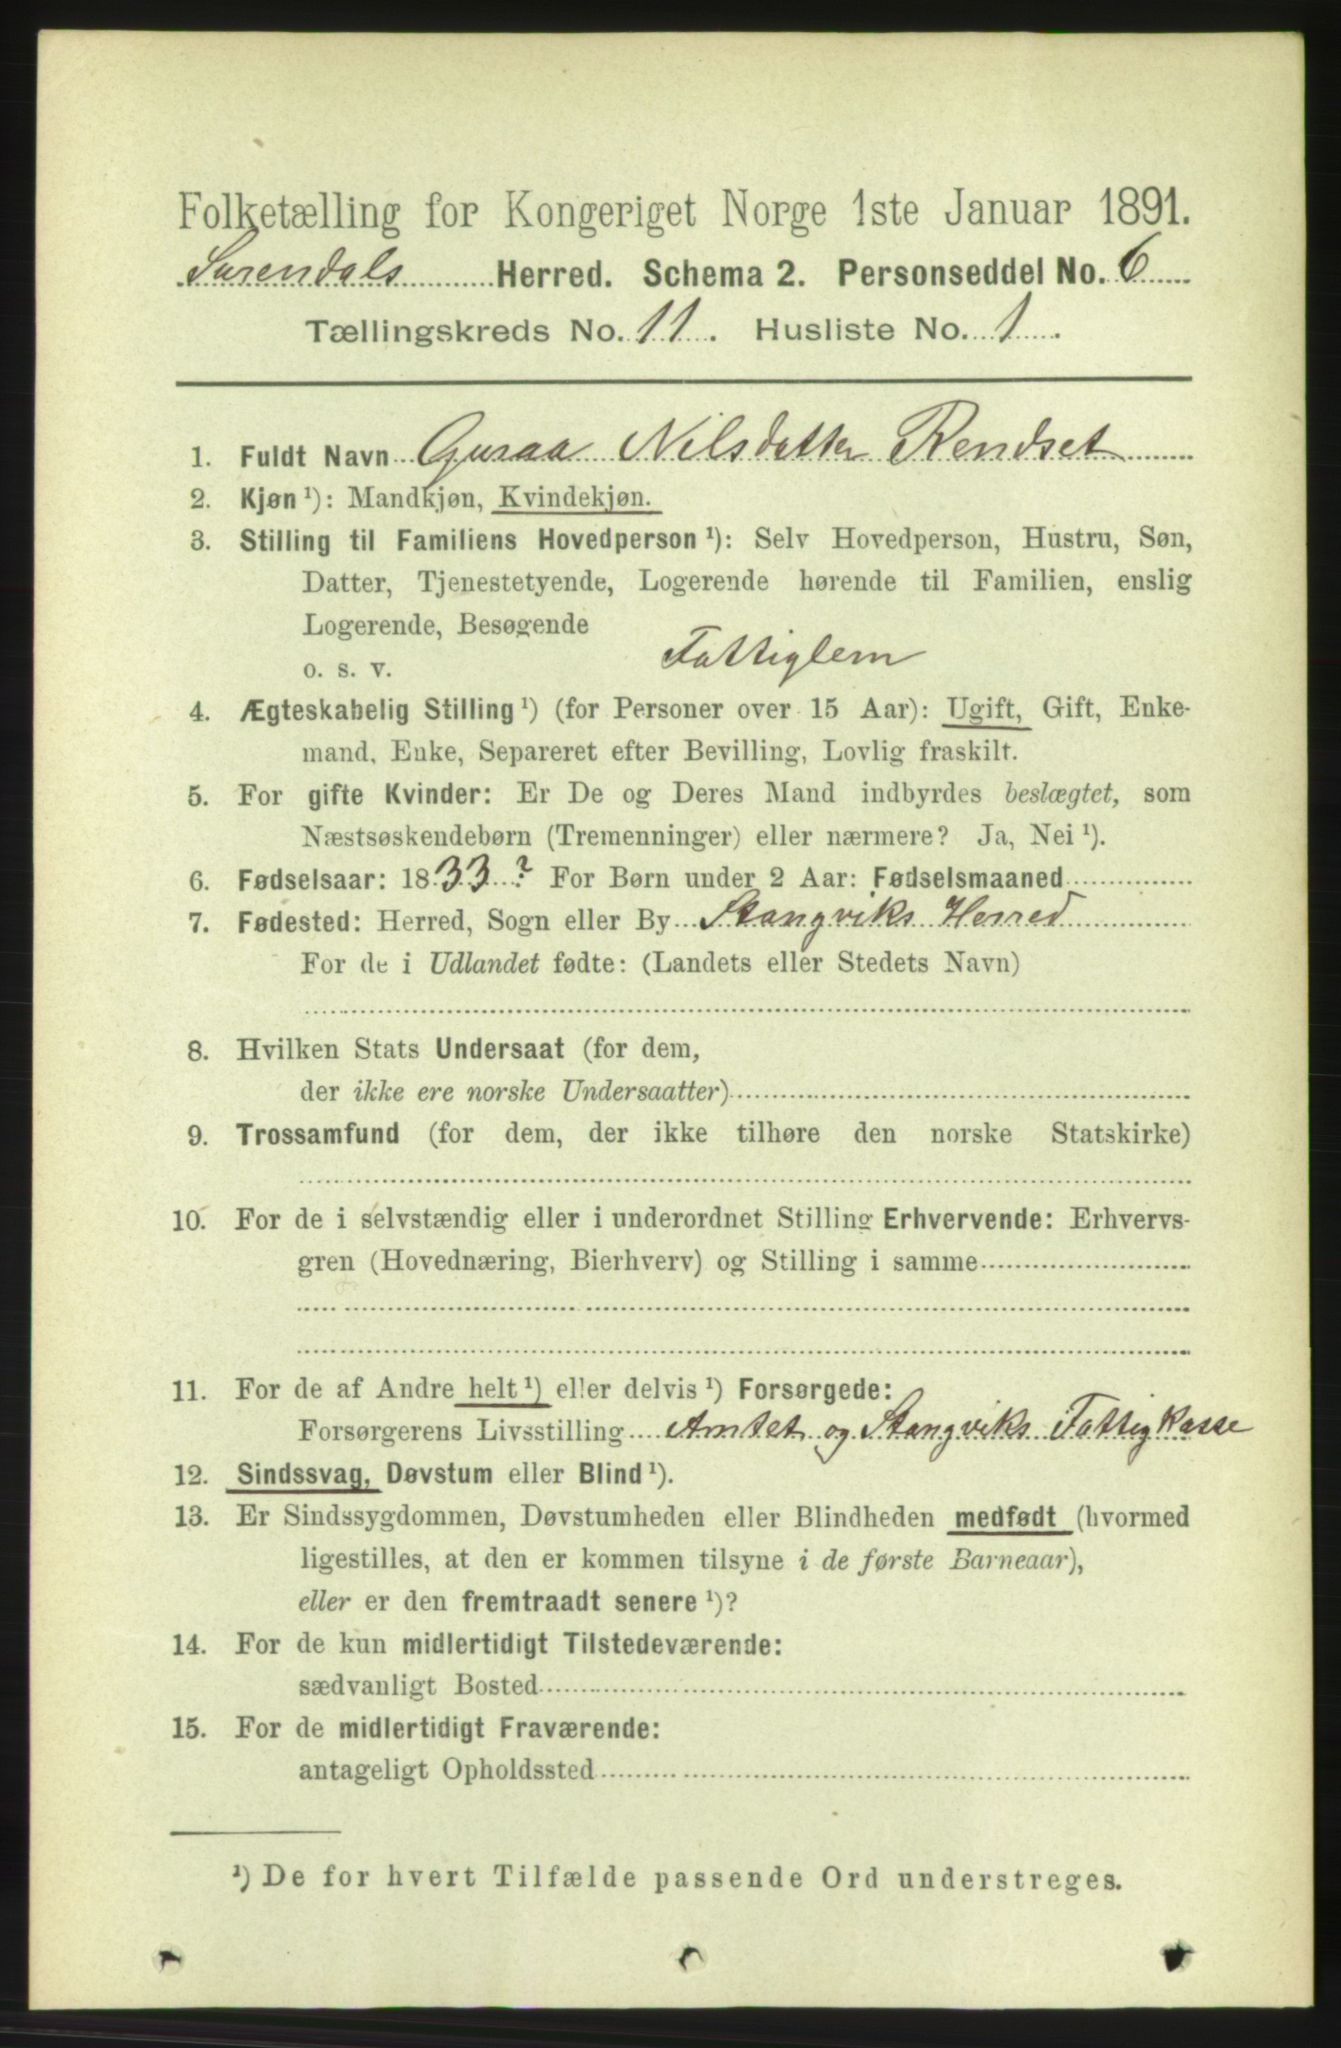 Folketælling for Kongeriget Norge 1ste Januar 1891.
Surendals Herred. Schema 2. Personseddel No. 6
Tællingskreds No. 11. Husliste No. 1.
1. Fuldt Navn Guraa Nilsdatter Rendset
2. Kjøn ¹): Mandkjøn, Kvindekjøn.
3. Stilling til Familiens Hovedperson ¹): Selv Hovedperson, Hustru, Søn,
Datter, Tjenestetyende, Logerende hørende til Familien, enslig
Logerende, Besøgende
o. s. v. Fattiglem
4. Ægteskabelig Stilling ¹) (for Personer over 15 Aar): Ugift, Gift, Enke-
mand, Enke, Separeret efter Bevilling, Lovlig fraskilt.
5. For gifte Kvinder: Er De og Deres Mand indbyrdes beslægtet, som
Næstsøskendebørn (Tremenninger) eller nærmere? Ja, Nei ¹).
6. Fødselsaar: 1833? For Børn under 2 Aar: Fødselsmaaned
7. Fødested: Herred, Sogn eller By Stangviks Herred
For de i Udlandet fødte: (Landets eller Stedets Navn)
8. Hvilken Stats Undersaat (for dem,
der ikke ere norske Undersaatter)
9. Trossamfund (for dem, der ikke tilhøre den norske Statskirke)
10. For de i selvstændig eller i underordnet Stilling Erhvervende: Erhvervs-
gren (Hovednæring, Bierhverv) og Stilling i samme
11. For de af Andre helt ¹) eller delvis ¹) Forsørgede:
Forsørgerens Livsstilling Amtet og Stangviks Fattigkasse
12. Sindssvag, Døvstum eller Blind ¹).
13. Er Sindssygdommen, Døvstumheden eller Blindheden medfødt (hvormed
ligestilles, at den er kommen tilsyne i de første Barneaar),
eller er den fremtraadt senere ¹)?
14. For de kun midlertidigt Tilstedeværende:
sædvanligt Bosted
15. For de midlertidigt Fraværende:
antageligt Opholdssted
¹) De for hvert Tilfælde passende Ord understreges.